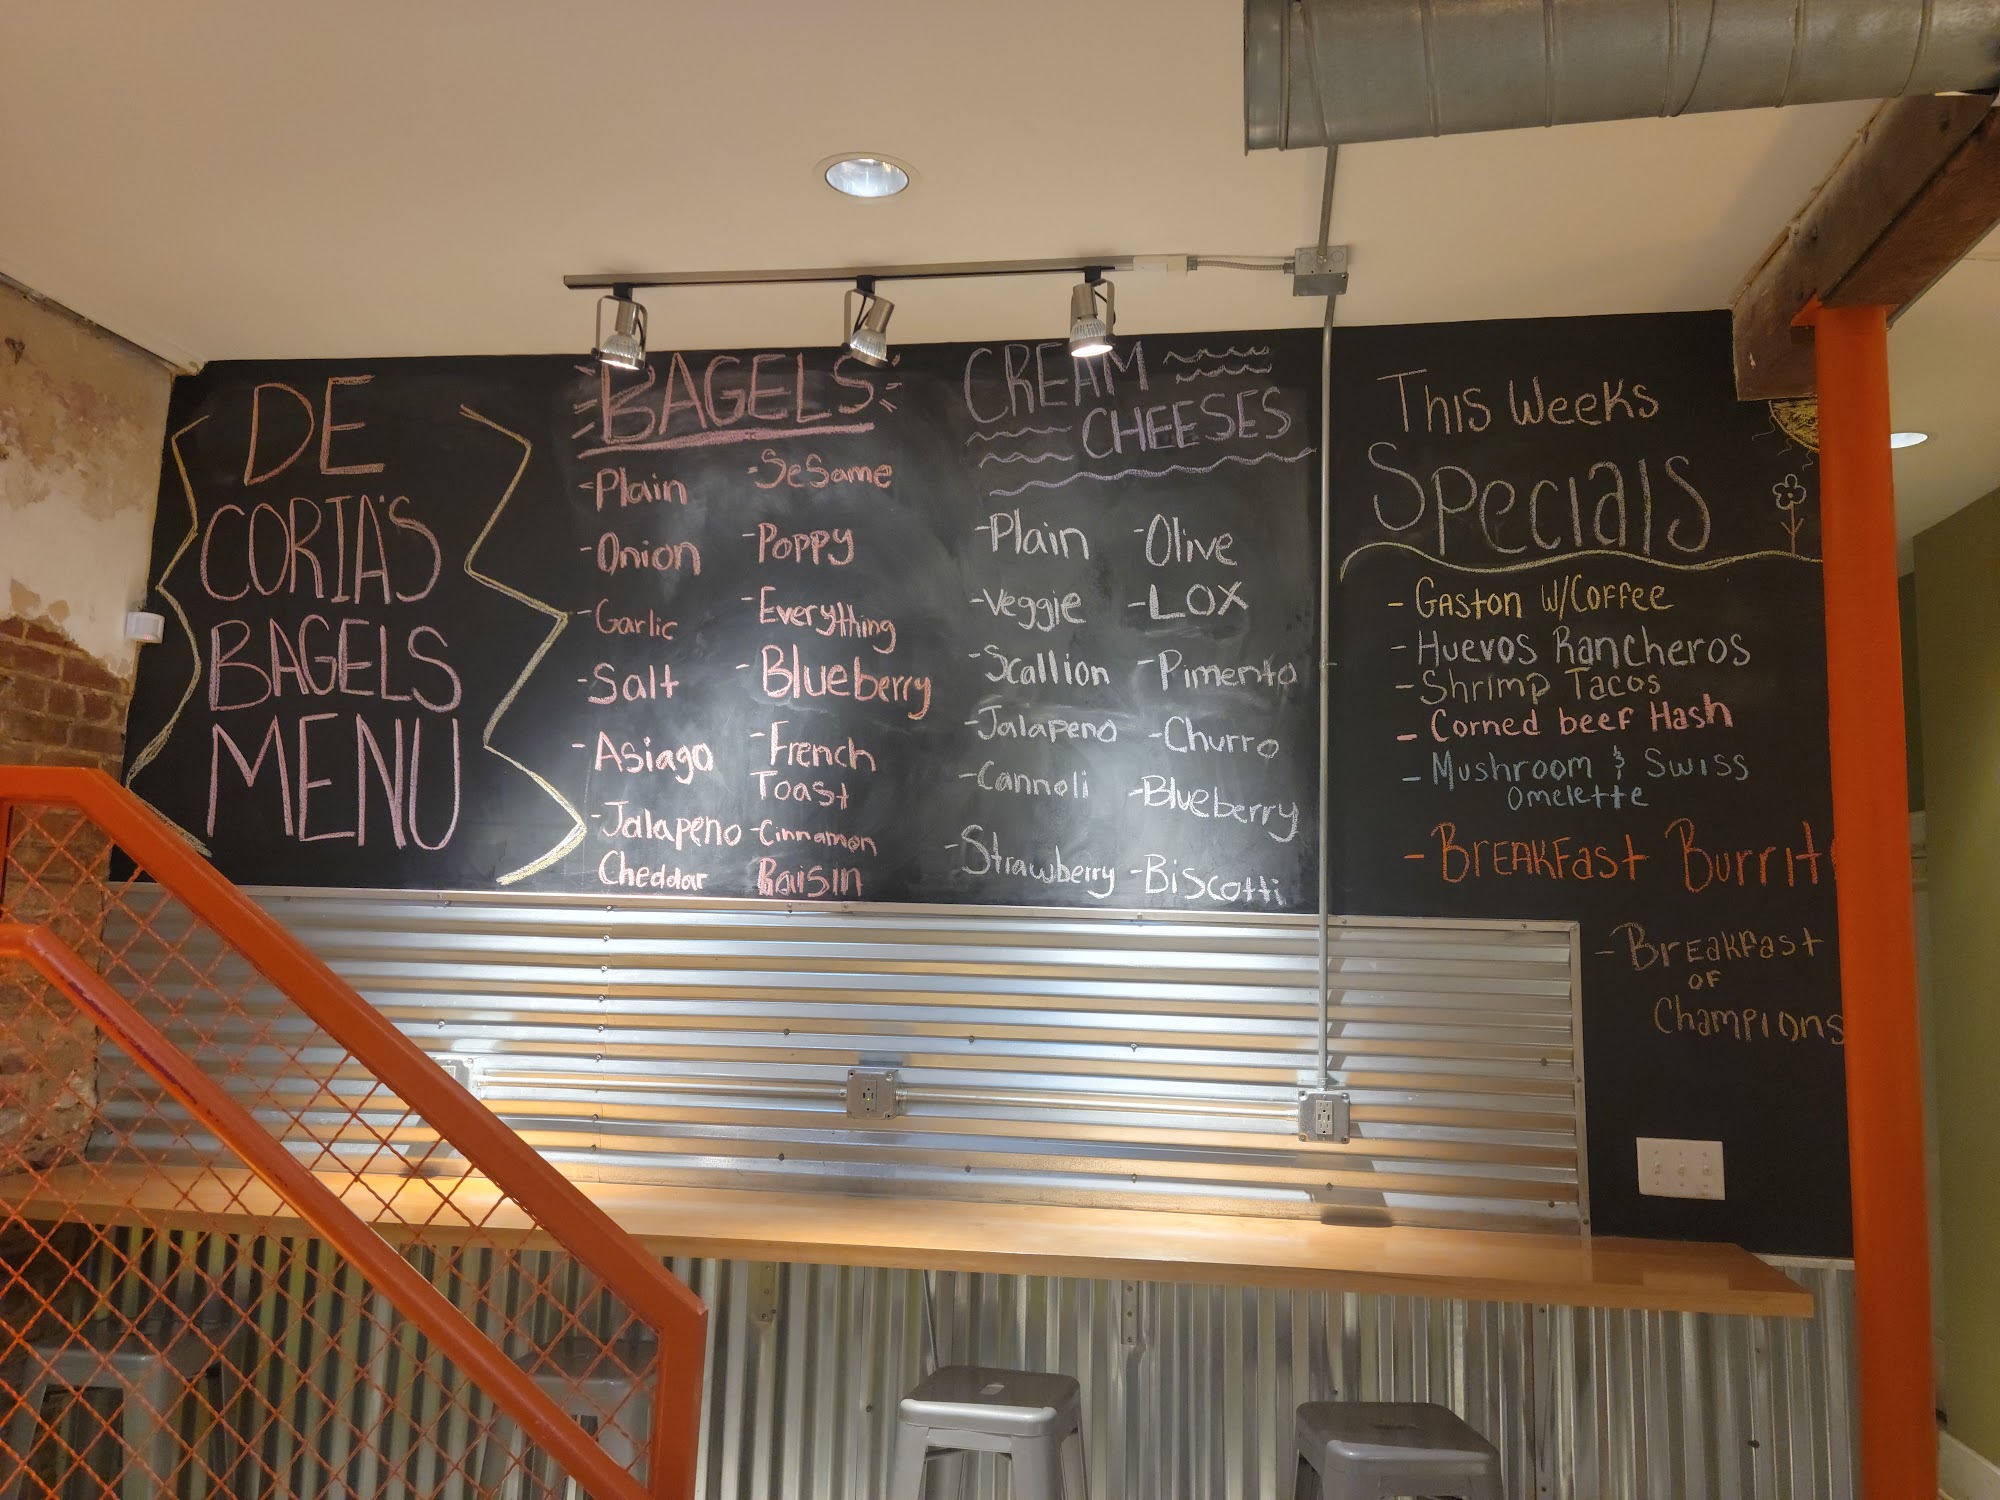 DE
CORIA'S
BAGELS
MENU
BAGELS
-Plain
-Onion
-Garlic
-Salt
-Asiago
-Jalapeno
Cheddar
-Sesame
-Poppy
-Everything
-Blueberry
-French
Toast
-Cinnamon
Raisin
CREAM
CHEESES
-Plain
-Veggie
-Scallion
-Jalapeno
-Cannoli
-Strawberry
-Olive
-LOX
-Pimento
-Churro
-Blueberry
-Biscotti
This Weeks
Specials
- Gaston w/Coffee
- Huevos Rancheros
- Shrimp Tacos
- Corned beef Hash
- Mushroom & Swiss
Omelette
- Breakfast Burrit
- Breakfast
of
Champions